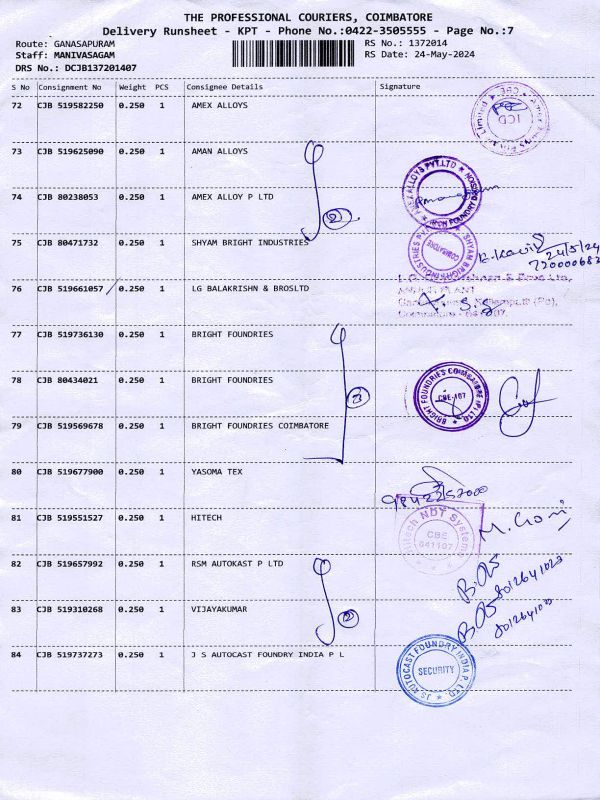 THE PROFESSIONAL COURIERS, COIMBATORE
Delivery Runsheet - KPT - Phone No.:0422-3505555 - Page No.:7
Route: GANASAPURAM RS No.: 1372014
Staff: MANIVASAGAM RS Date: 24-May-2024
DRS No.: DCJB137201407
S No Consignment No Weight PCS Consignee Details Signature
72 CJB 519582250 0.250 1 AMEX ALLOYS
ICD
73 CJB 519625090 0.250 1 AMAN ALLOYS
AMEX ALLOYS PVT.LTD
IRON FOUNDRY DIVISION
74 CJB 80238053 0.250 1 AMEX ALLOY P LTD
2
75 CJB 80471732 0.250 1 SHYAM BRIGHT INDUSTRIES
SHYAM BRIGHT INDUSTRIES
COIMBATORE
24/5/24
76 CJB 519661057 0.250 1 LG BALAKRISHN & BROSLTD
77 CJB 519736130 0.250 1 BRIGHT FOUNDRIES
78 CJB 80434021 0.250 1 BRIGHT FOUNDRIES
3
BRIGHT FOUNDRIES COIMBATORE (P) LTD.
CBE-107
79 CJB 519569678 0.250 1 BRIGHT FOUNDRIES COIMBATORE
80 CJB 519677900 0.250 1 YASOMA TEX
81 CJB 519551527 0.250 1 HITECH
Hitech NDT Systems
CBE
641107
82 CJB 519657992 0.250 1 RSM AUTOKAST P LTD
8012641023
83 CJB 519310268 0.250 1 VIJAYAKUMAR
2
84 CJB 519737273 0.250 1 J S AUTOCAST FOUNDRY INDIA P L
JS AUTOCAST FOUNDRY INDIA P. LTD.
SECURITY